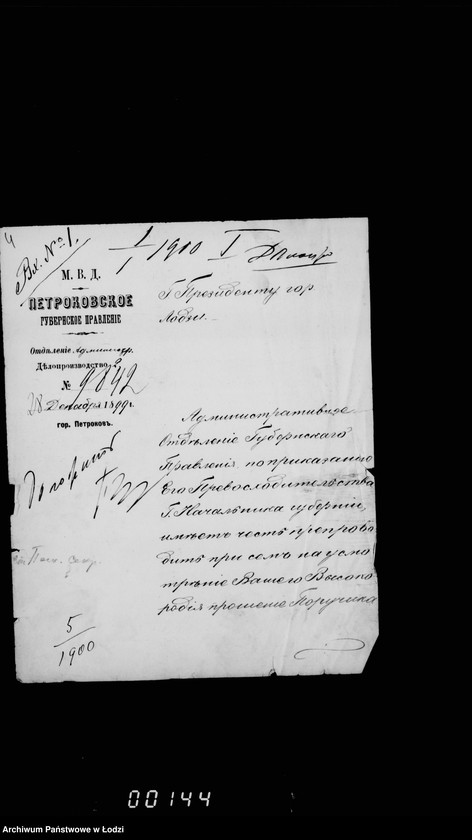 4
Вх. № 1.
1/1 1900 I
М. В. Д.
ПЕТРОКОВСКОЕ
ГУБЕРНСКОЕ ПРАВЛЕНІЕ
Отдѣленіе Администр.
Дѣлопроизводство 2
№ 9842
28 Декабря 1899 г.
гор. Петроковъ.
5/1900
Г Президенту гор
Лодзи.
Административное
Отдѣленіе Губернскаго
Правленія, по приказанію
Его Превосходительства
Г. Начальника губерніи,
имѣетъ честь препрово
дить при семъ на усмо
трѣніе Вашего Высоко
родія прошеніе Поручика
00144
Archiwum Państwowe w Łodzi